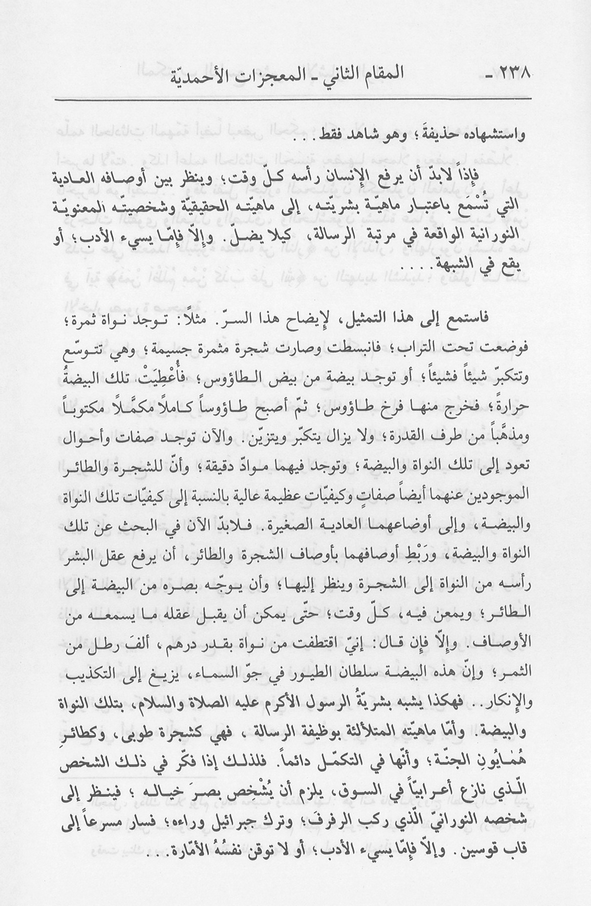 ٢٣٨ - المقام الثاني - المعجزات الأحمديّة
واستشهاده حذيفةَ؛ وهو شاهد فقط...
فإذاً لابدّ أن يرفع الإنسان رأسه كل وقت؛ وينظر بين أوصافه العادية
التي تُسْمَع باعتبار ماهيّة بشريّته، إلى ماهيّته الحقيقيّة وشخصيّته المعنويّة
النورانية الواقعة في مرتبة الرسالة، كيلا يضلّ. وإلاّ فإمّا يسيء الأدب؛ أو
يقع في الشبهة....
فاستمع إلى هذا التمثيل، لإيضاح هذا السرّ. مثلاً: توجد نواة ثمرة؛
فوضعت تحت التراب؛ فانبسطت وصارت شجرة مثمرة جسيمة؛ وهي تتوسّع
وتتكبرّ شيئاً فشيئاً؛ أو توجد بيضة من بيض الطاؤوس؛ فأُعْطِيَتْ تلك البيضةُ
حرارةً؛ فخرج منها فرخ طاؤوس؛ ثمّ أصبح طاؤوساً كاملاً مكمَّلاً مكتوباً
ومذهَّباً من طرف القدرة؛ ولا يزال يتكبّر ويتزيّن. والآن توجد صفات وأحوال
تعود إلى تلك النواة والبيضة؛ وتوجد فيهما موادّ دقيقة؛ وأنّ للشجرة والطائر
الموجودين عنهما أيضاً صفاتٍ وكيفيّات عظيمة عالية بالنسبة إلى كيفيّات تلك النواة
والبيضة، وإلى أوضاعهما العادية الصغيرة. فلابدّ الآن في البحث عن تلك
النواة والبيضة، ورَبْطِ أوصافهما بأوصاف الشجرة والطائر، أن يرفع عقل البشر
رأسه من النواة إلى الشجرة وينظر إليها؛ وأن يوجّه بصره من البيضة إلى
الطائر؛ ويمعن فيه، كلّ وقت؛ حتّى يمكن أن يقبل عقله ما يسمعه من
الأوصاف. وإلاّ فإن قال: إنيّ اقتطفت من نواة بقدر درهم، ألفَ رطل من
الثمر؛ وإنّ هذه البيضة سلطان الطيور في جوّ السماء، يزيغ إلى التكذيب
والإنكار.. فهكذا يشبه بشريّةُ الرسول الأكرم عليه الصلاة والسلام، بتلك النواة
والبيضة. وأمّا ماهيّته المتلألئة بوظيفة الرسالة، فهي كشجرة طوبى، وكطائرِ
هُمَايُونِ الجنّة؛ وأنّها في التكمّل دائماً. فلذلك إذا فكّر في ذلك الشخص
الّذي نازع أعرابيّاً في السوق، يلزم أن يُشْخص بصرَ خياله؛ فينظر إلى
شخصه النورانيّ الّذي ركب الرفرف؛ وترك جبرائيل وراءه؛ فسار مسرعاً إلى
قاب قوسين. وإلاّ فإمّا يسيء الأدب؛ أو لا توقن نفسُهُ الأمّارة...